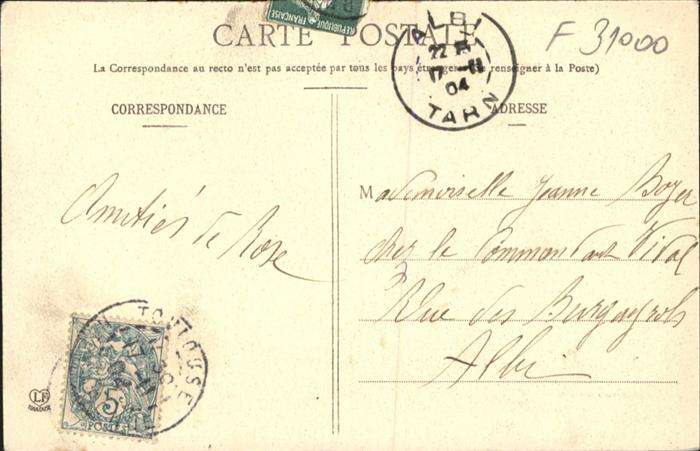 RÉPUBLIQUE FRANÇAISE
CARTE POSTALE
F 31000
La Correspondance au recto n'est pas acceptée par tous les pays étrangers (Se renseigner à la Poste)
ALBI
22
17
04
TARN
CORRESPONDANCE
ADRESSE
Amitiés de Rose
Mademoiselle Jeanne Boyer
chez le Commandant Vidal
Rue des Burgayrols
Albi
TOULOUSE
5c
POSTES
LF
TOULOUSE